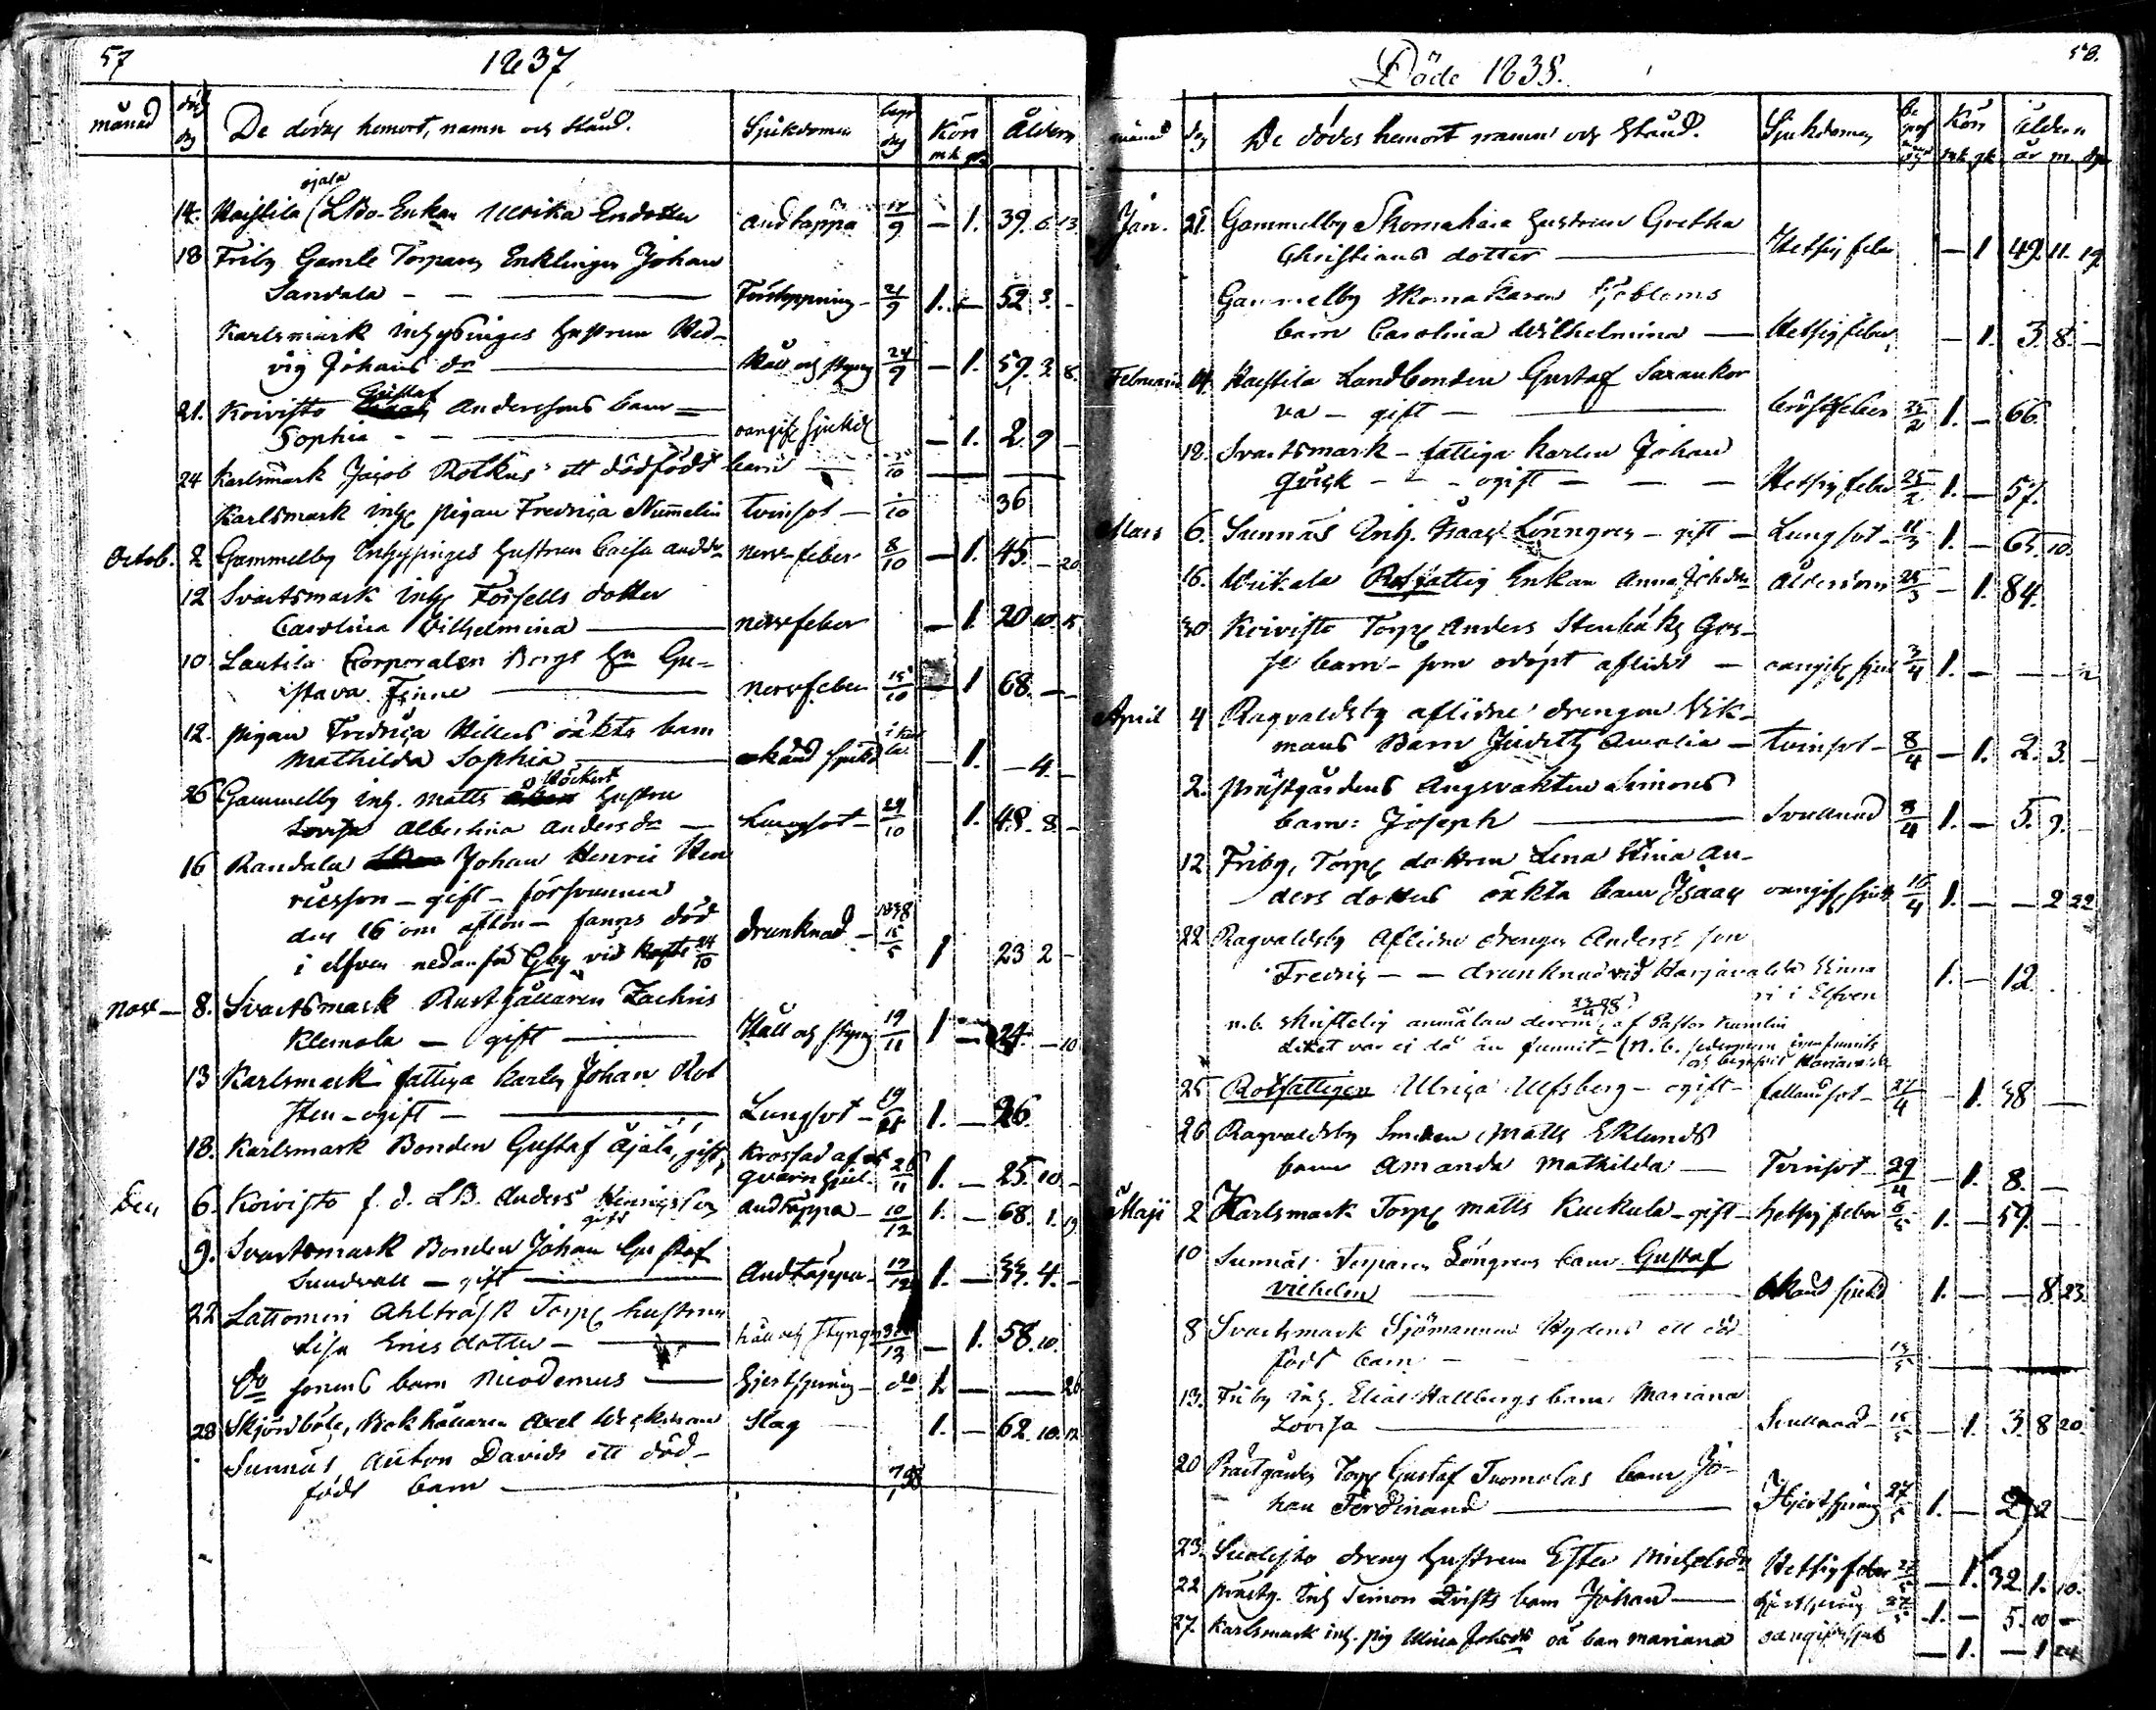 57
1837
månad död dag De dödas hemort, namn och stånd. Sjukdomen begr dag Kön Åldern
mk qk
ojala
14. Haistila LBo-Enkan Ulrika Endotter andtäppa 17/9 — 1. 39. 6. 13.
18 Friby Gamle Torparen Enklingen Johan
Sandala — Förstoppning 21/9 1. — 52 3. -
Karlsmark Inhysinges hustrun Hed-
vig Johans dr — Håll och styng 24/9 — 1. 59. 3. 8.
Gustaf
21. Koivisto Anderssons barn
Sophia — oangif. sjukd — 1. 2. 9 -
24 Karlsmark Jacob Rolkus ett dödfödt barn
Karlsmark inh pigan Fredrica Numelin tvinsot 36
Octob. 2 Gammelby Inhysinges hustrun Caisa andsdr nervfeber 8/10 — 1. 45. - 20
12 Svartsmark inh Forsells dotter
Carolina Vilhelmina — nervfeber — 1. 20 10. 15
10. Lautila Corporalen Bergs hu Gu-
stava Finne — nervfeber 15/10 — 1 68. — -
12. pigan Fredrica Hillers oäkta barn
Mathilda Sophia — okänd sjukd — 1. — 4. -
26 Gammelby inh. Matts hustru
Lovisa Albertina Andersdr — Lungsot 29/10 1. 48. 8. -
16 Randala Johan Henric Hen
ricsson — gift — försvunnen
den 16 om afton — fanns död
i elfven nedanför Gby vid 24/10 drunknad — 1838 15/5 1 23 2 -
Nov — 8. Svartsmark Rusthållaren Zachris
Klemola — gift — Håll och styng 19/11 1 — 24. — 10
13 Karlsmark fattiga karlen Johan Rol
sten — ogift — Lungsot 19/11 1. — 26.
18. Karlsmark Bonden Gustaf Äjälä, gift, Krossad af et
qvarnhjul. 26/11 1. — 25. 10. -
Dec 6. Koivisto f. d. LB. Anders Henricsson andtäppa 10/12 1. — 68. 1. 19
gift
9. Svartsmark Bonden Johan Gustaf
Sundvall — gift — Andtäppa 17/12 1. — 33. 4. -
22 Lattomeri Ahlträsk Torp hustrun
Lisa Ericsdotter — håll och styng — 1. 58. 10.
Do sonens barn Nicodemus — Hjertspräng do 1. — — 26
28 Skjönböle, Bokhållaren Axel Weckman Slag 1. — 62. 10. 12
Sunnäs Anton Davids ett död-
födt barn —
58.
Döde 1838.
månad dag De dödes hemort namn och stånd. Sjukdomen Kön Åldern
mk qk år m. dgr
Jan. 21. Gammelby Skomakare hustrun Gretha
Christians dotter — Hetsig feber — 1 49. 11. 19.
Gammelby Skomakaren Sjobloms
barn Carolina Wilhelmina — Hetsigfeber — 1. 3. 8. —
Februari 14. Haistila Landbonden Gustaf Saxanko
va — gift — bröstfeber 25/2 1. — 66.
18. Svartsmark — fattiga karlen Johan
Qvick — — ogift — — Hetsigfeber 25/2 1. — 57.
Mars 6. Sunnäs Inh. Isaac Lönngren — gift — Lungsot 11/3 1. — 65. 10.
16. Wiikala Rotfattig Enkan Anna Johdr Ålderdom 25/3 — 1. 84.
30 Koivisto Torp Anders Stenbäks Gos-
se barn — som odöpt aflidit — oangif. sjuk 3/4 1. —
April 4 Ragvaldsby aflidne drengen Vik-
mans Barn Judith Amalia — tvinsot 8/4 — 1. 2. 3. -
2. prästgårdens Ängsvakten Simons
barn: Joseph — Svullnad 8/4 1. — 5. 9. -
12 Friby, Torp dottren Lena Stina An-
ders dotters oäkta barn Isaac oangif. sjukd 16/4 1. — — 2 22
22 Ragvaldsby Aflidne drengen Anders son
Fredric — — drunknad vid Harjavalda
i Elfven 1. — 12.
n.b. skriftelig anmälan derom af Pastor Kumlin
liket var ei då än funnit — (N.b. sedermera funnits
och begrafvit Harjavalda
25 Rotfattigen Ulrica Ulfsberg — ogift — fallandsot 27/4 — 1. 38 —
26 Ragvaldsby Smeden Matts Eklunds
barn Amanda Mathilda — Tvinsot 29/4 — 1. 8. —
Maji 2 Karlsmark Torp Matts Kuckula — gift — hetsig feber 6/5 1. — 59. —
10 Sunnäs Torparen Löngrens barn Gustaf
Vilhelm — Okänd sjukd 1. — — 8. 23.
8 Svartsmark Sjömannen Hydens ett död
födt barn — 13/5
13. Friby inh. Elias Hallbergs barn Mariana
Lovisa — Svullnad — 1. 3. 8 20.
20 Prästgårdens Torp Gustaf Tuomolas barn Jo-
han Ferdinand — Hjertspräng 27/5 1. — 2 2 —
23. Suolisto dreng hustrun Ester Michelsdr Hetsigfeber — 1. 32 1. 10.
22 prästg. Inh Simon Qvists barn Johan — hjertspräng 27/5 1. — 5. 10 -
27. Karlsmark inh. pig Ulrica Johsdr oä barn Mariana oangifven sjuk — 1. — 1 24